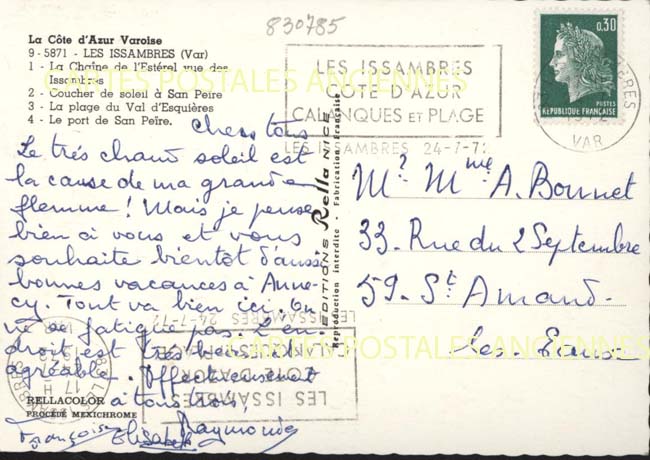 830785
La Côte d'Azur Varoise
9-5871 - LES ISSAMBRES (Var)
1 - La Chaîne de l'Estérel vue des
Issambres
2 - Coucher de soleil à San Peïre
3 - La plage du Val d'Esquières
4 - Le port de San Peïre.
LES ISSAMBRES
COTE D'AZUR
CALANQUES ET PLAGE
LES ISSAMBRES 24-7-72
0,30
POSTES
REPUBLIQUE FRANÇAISE
VAR
CARTES POSTALES ANCIENNES
Chers tous
Le trés chaud soleil est
la cause de ma grande
flemme ! Mais je pense
bien à vous et vous
souhaite bientôt d'aussi
bonnes vacances à Anne-
cy. Tout va bien ici, on
ne se fatigue pas. L'en-
droit est très
agréable. Affectueusement
à tous tous,
Françoise Elisabeth Raymonde
EDITIONS Rella NICE
Reproduction Interdite - Fabrication Française
Mr Mme A. Bonnet
33. Rue du 2 Septembre
59. St Amand.
les Eaux
CARTES POSTALES ANCIENNES
LES ISSAMBRES 24-7-72
COTE D'AZUR
LES ISSAMBRES
RELLACOLOR
PROCÉDÉ MEXICHROME